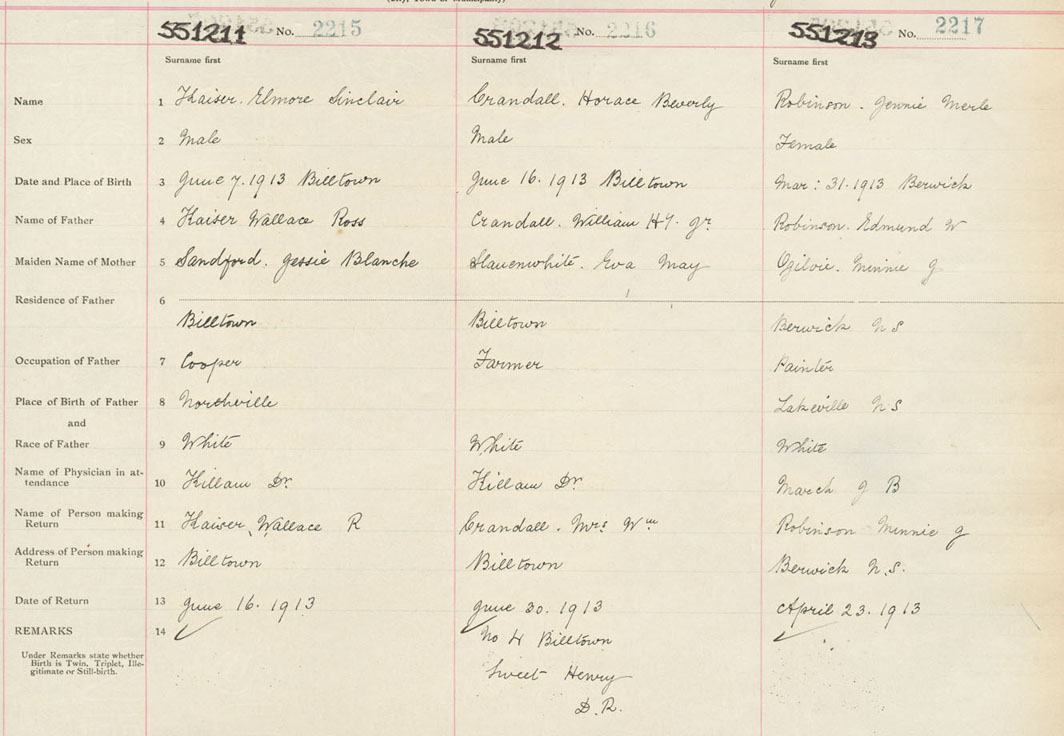 (City, Town or Municipality)
551211 No. 2215 551212 No. 2216 551213 No. 2217
Surname first Surname first Surname first
Name 1 Kaiser. Elmore Sinclair Crandall. Horace Beverly Robinson. Jennie Merle
Sex 2 Male Male Female
Date and Place of Birth 3 June 7. 1913 Billtown June 16. 1913 Billtown Mar: 31. 1913 Berwick
Name of Father 4 Kaiser Wallace Ross Crandall. William Hy. Jr. Robinson. Edmund W
Maiden Name of Mother 5 Sandford. Jessie Blanche Slauenwhite. Eva May Ogilvie. Minnie J
Residence of Father 6
Billtown Billtown Berwick N S
Occupation of Father 7 Cooper Farmer Painter
Place of Birth of Father 8 Northville Lakeville N S
and
Race of Father 9 White White White
Name of Physician in at-
tendance 10 Killam Dr. Killam Dr. March J B
Name of Person making
Return 11 Kaiser, Wallace R Crandall. Mrs Wm Robinson Minnie J
Address of Person making
Return 12 Billtown Billtown Berwick N.S.
Date of Return 13 June 16. 1913 June 30. 1913 April 23. 1913
REMARKS 14 ✓ ✓ No 4 Billtown ✓
Under Remarks state whether
Birth is Twin, Triplet, Ille-
gitimate or Still-birth.
Sweet Henry
D.R.